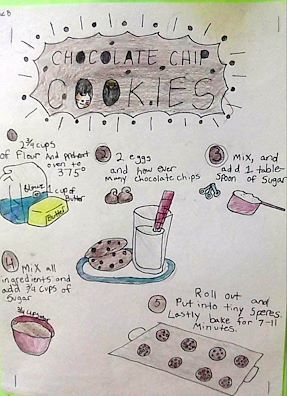 CHOCOLATE CHIP
COOKIES
1
2 3/4 cups
of flour and preheat
oven to
375°
flour
1 cup of
butter
Butter
2
2 eggs
and how ever
many chocolate chips
3
Mix, and
add 1 table-
spoon of sugar
4
Mix all
ingredients and
add 3/4 cups of
sugar
3/4 cups
5
Roll out and
Put into tiny speres.
Lastly bake for 7-11
Minutes.